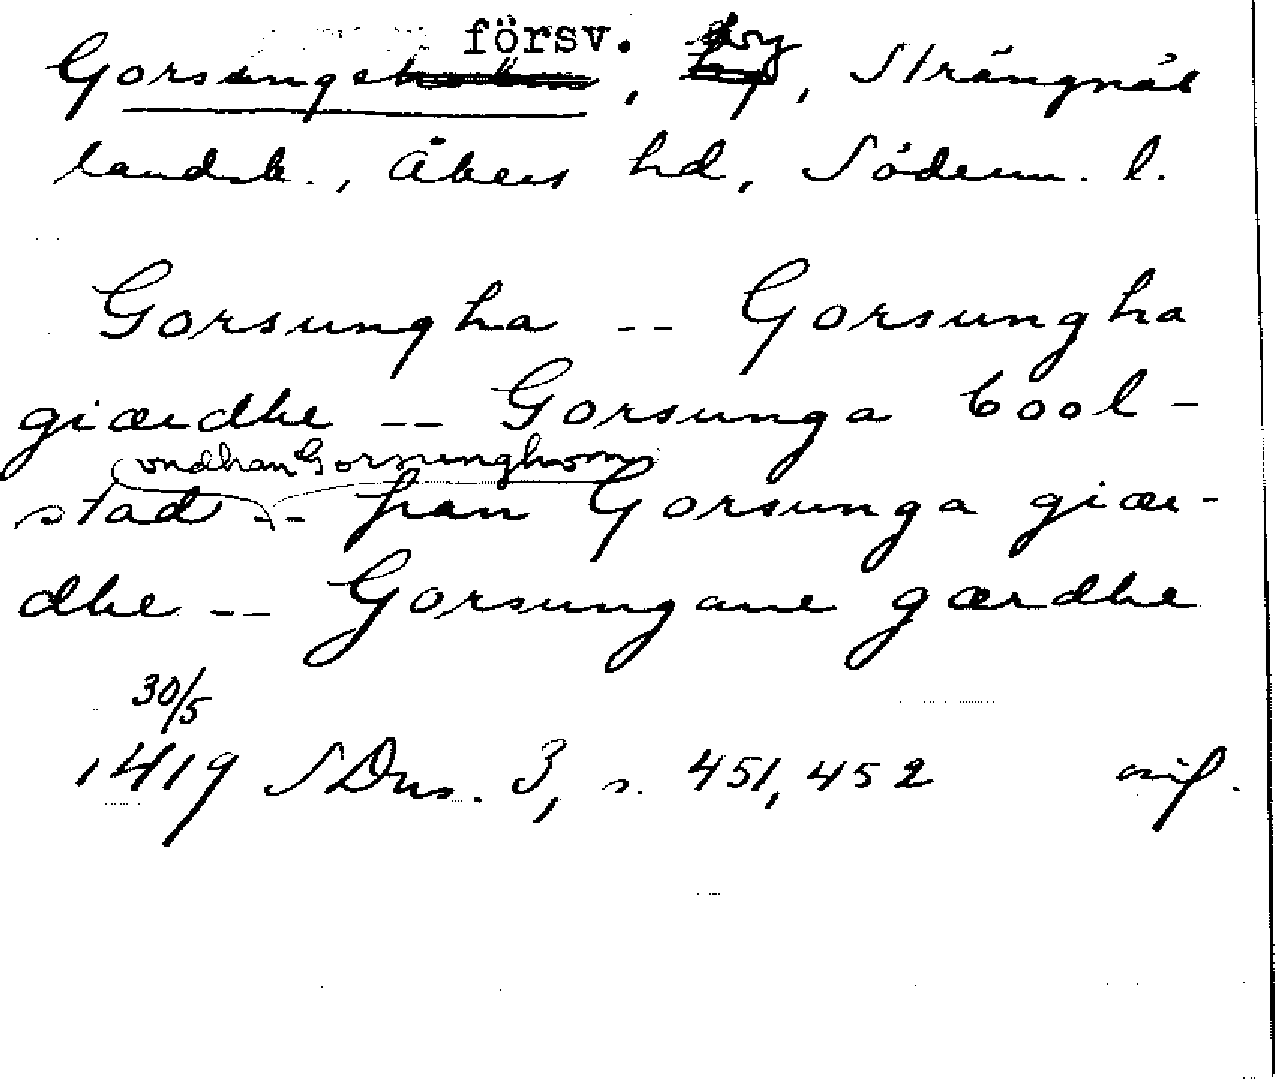 försv.
Gorsinge, by, Strängnäs
landsk., Åkers hd, Söderm. l.
Gorsungha -- Gorsungha
giærdhe -- Gorsunga bool-
(vndhan Gorsunghom)
stad -- fran Gorsunga giær-
dhe -- Gorsungane gærdhe
30/5
1419 SDns. 3, s. 451, 452